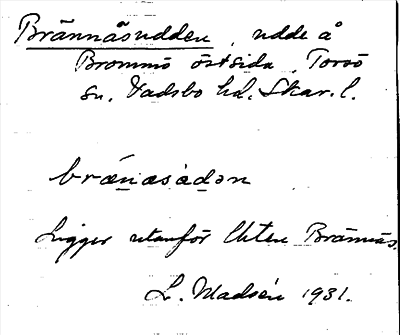 Brännåsudden, udde å
Brommö östsida, Torsö
sn. Vadsbo hd. Skar. l.
brænasàdən
Ligger utanför Brännås.
L. Madsén 1931.